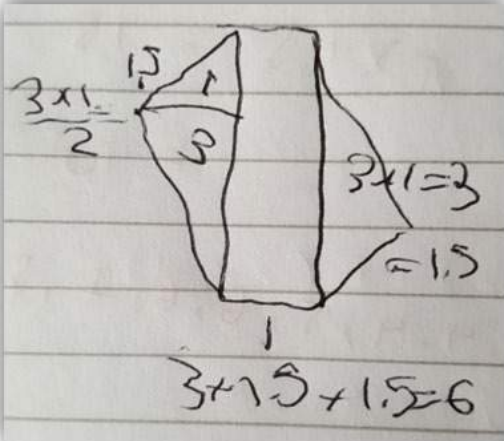 1.5
1
3×1
2
3
3×1=3
=1.5
1
3+1.5+1.5=6